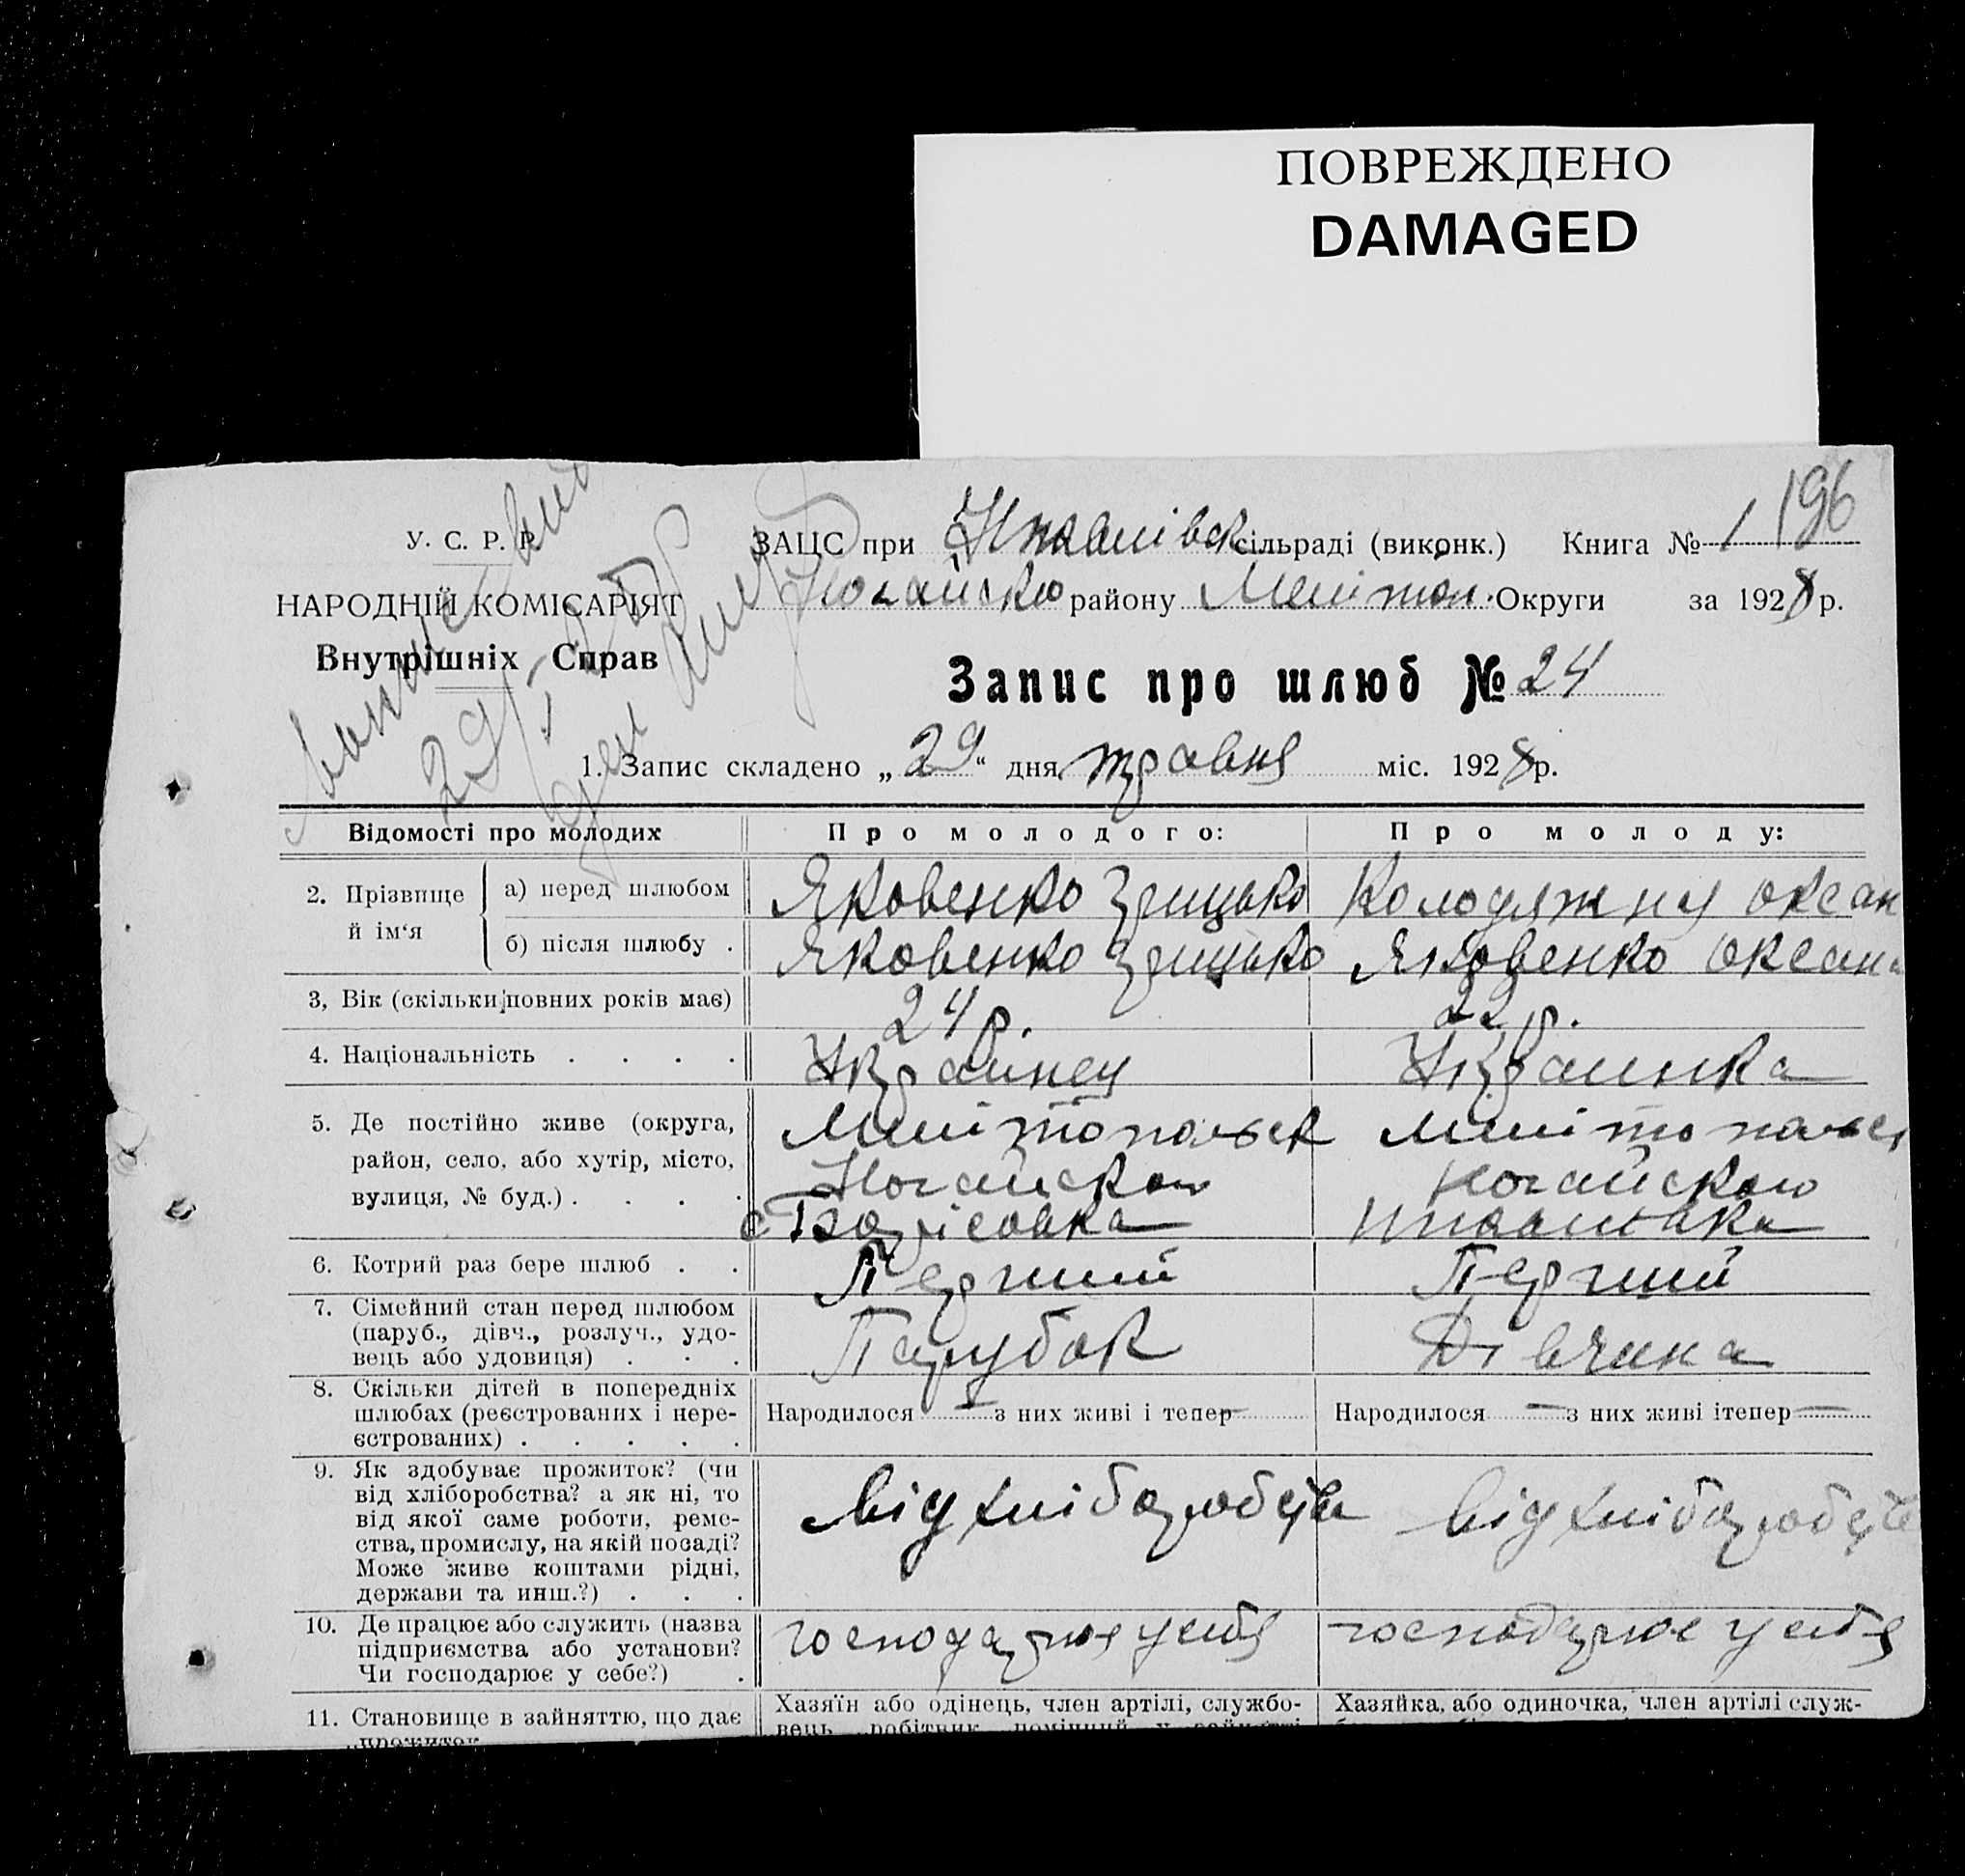 ПОВРЕЖДЕНО
DAMAGED
У. С. Р. Р.
НАРОДНІЙ КОМІСАРІЯТ
Внутрішніх Справ
29/
ЗАЦС при сільраді (виконк.) Книга № 1 196
Ногайско району Мелітоп. Округи за 1928 р.
Запис про шлюб № 24
1. Запис складено „29“ дня травня міс. 1928 р.
Відомості про молодих
Про молодого:
Про молоду:
2. Прізвище й ім‘я
а) перед шлюбом
Яковенко Грицько
Колодяжну Оксан
б) після шлюбу .
Яковенко Грицько
Яковенко Оксана
3, Вік (скільки повних років має)
24 р.
22 р.
4. Національність . . . .
Українец
Українка
5. Де постійно живе (округа,
район, село, або хутір, місто,
вулиця, № буд.) . . . .
Мелітопольск
Ногайского
с Борісовка
Мелітопольск
Ногайского
6. Котрий раз бере шлюб . .
Перший
Перший
7. Сімейний стан перед шлюбом
(паруб., дівч., розлуч., удо-
вець або удовиця) . . .
Парубок
Дівчина
8. Скільки дітей в попередніх
шлюбах (реєстрованих і нере-
єстрованих) . . . . .
Народилося — з них живі і тепер —
Народилося — з них живі ітепер —
9. Як здобуває прожиток? (чи
від хліборобства? а як ні, то
від якої саме роботи, реме-
ства, промислу, на якій посаді?
Може живе коштами рідні,
держави та инш.?) . . .
від хліборобств
від хліборобств
10. Де працює або служить (назва
підприємства або установи?
Чи господарює у себе?) .
господарює у себя
господарює у себя
11. Становище в зайняттю, що дає
прожиток
Хазяїн або одінець, член артілі, службо-
вець, робітник, помічний у зайнятті
Хазяйка, або одиночка, член артілі служ-